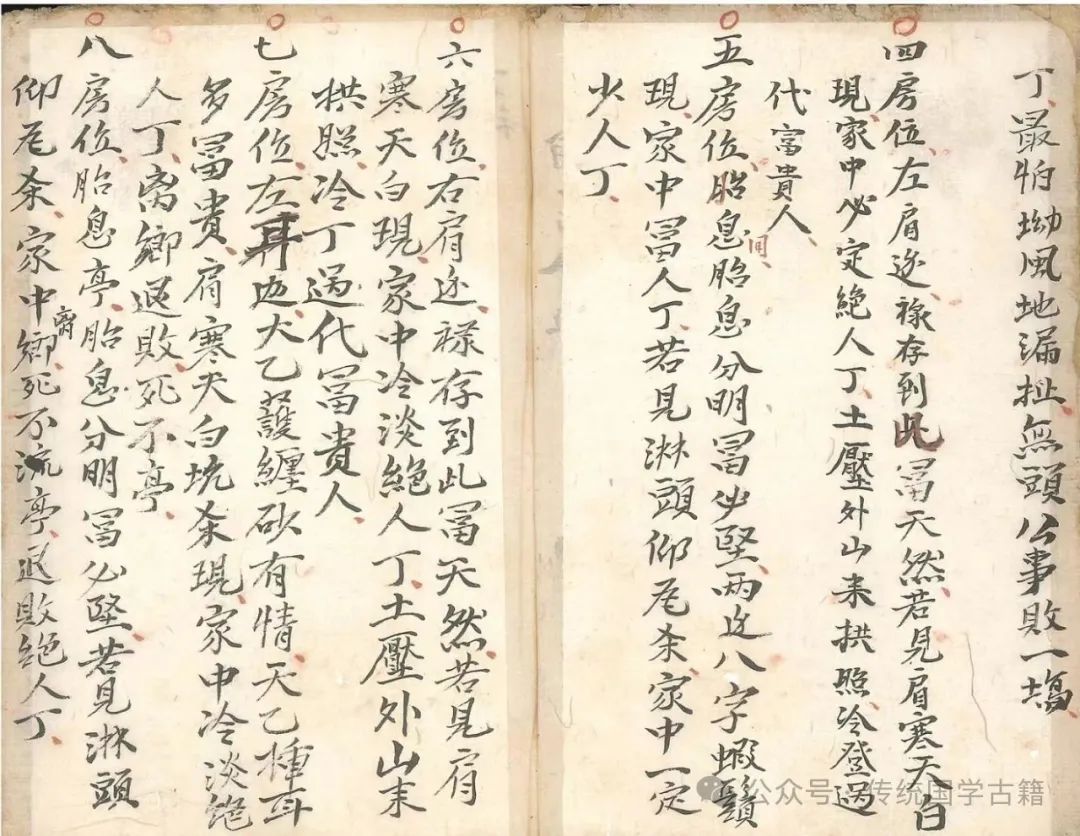 丁、最怕坳風地漏扯、無頭公事敗一塲、
四房位、左肩迩、祿存到此冨天然、若見眉寒天白
現、家中必定絶人丁、土壓外山来拱照、冷登過
代富貴人、
五房位、胎息同、胎息分明冨必堅、兩边八字蝦鬚
現、家中冨人丁、若見淋頭仰尾杀、家中一定
少人丁、
六房位、右肩迩、禄存到此冨天然、若見肩
寒天白現、家中冷淡絕人丁、土壓外山来
拱照、冷丁過代冨貴人、
七房位、左耳迩、太乙護纏砂有情、天乙挿耳
多冨貴、肩寒天白坑杀現、家中冷淡絶
人丁、离鄉退敗、死不亭、
八房位、胎息亭、胎息分明冨必堅、若見淋頭
仰尾杀、家中離鄉、死不流亭、退敗絕人丁、
公众号：传统国学古籍